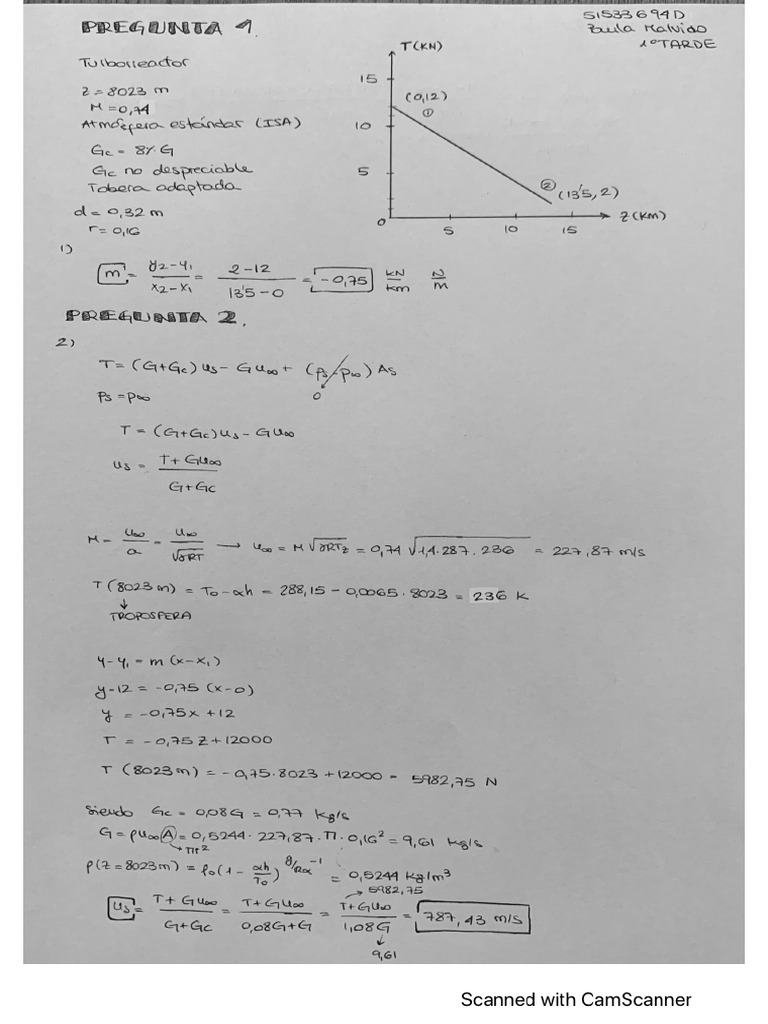 PREGUNTA 1.
51533694D
Paula Malvido
1º TARDE
Turborreactor
z = 8023 m
M = 0,74
Atmósfera estándar (ISA)
Gc = 8% G
Gc no despreciable
Tobera adaptada
d = 0,32 m
r = 0,16
T (KN)
15
(0,12)
①
10
5
②
(13'5, 2)
Z (KM)
0
5
10
15
1)
m = y2-y1 / x2-x1 = 2-12 / 13'5-0 = -0,75 kN/km N/m
PREGUNTA 2.
2)
T = (G+Gc) us - G u∞ + (ps - p∞) As
ps = p∞
0
T = (G+Gc) us - G u∞
us = T + G u∞ / G+Gc
M = u∞/a = u∞/√γRT → u∞ = M √γRTz = 0,74 √1,4·287·236 = 227,87 m/s
T (8023 m) = T0 - αh = 288,15 - 0,0065·8023 = 236 K
TROPOSFERA
y-y1 = m (x-x1)
y-12 = -0,75 (x-0)
y = -0,75x + 12
T = -0,75 z + 12000
T (8023 m) = -0,75·8023 + 12000 = 5982,75 N
siendo Gc = 0,08G = 0,77 kg/s
G = ρ u∞ A = 0,5244 · 227,87 · π · 0,16² = 9,61 kg/s
πr²
ρ(z = 8023 m) = ρ0 (1 - αh/T0)^(g/Rα - 1) = 0,5244 kg/m³
5982,75
us = T + G u∞ / G+Gc = T + G u∞ / 0,08G+G = T + G u∞ / 1,08G = 787,43 m/s
9,61
Scanned with CamScanner